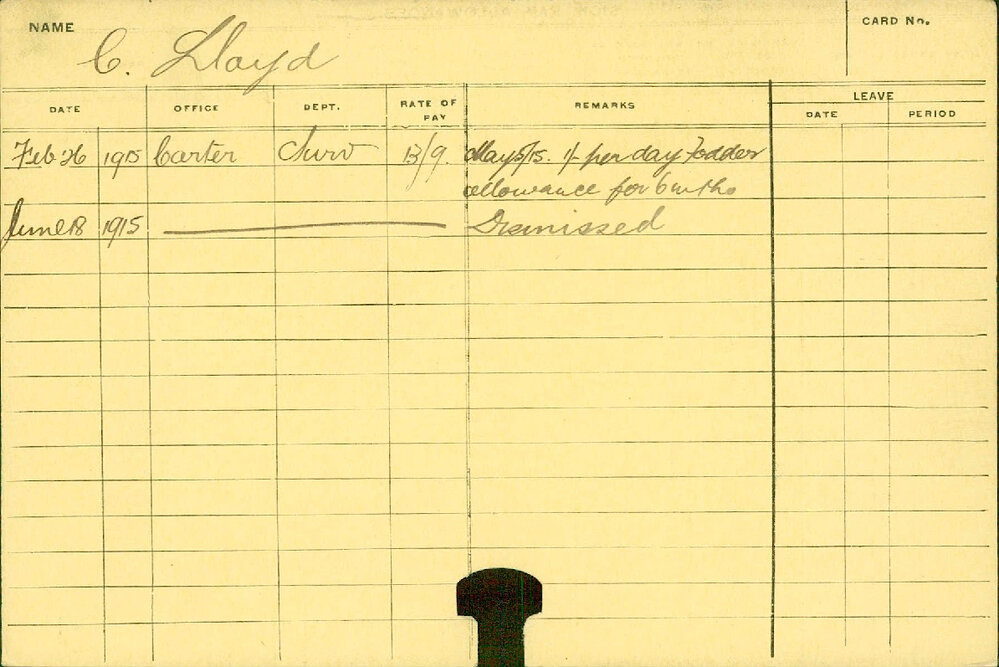 NAME C. Lloyd CARD No.
DATE OFFICE DEPT. RATE OF PAY REMARKS LEAVE
DATE PERIOD
Feb 26 1915 Carter 13/9. May 5/15. 1/- per day Fodder
allowance for 6 mths
June 18 1915 Dismissed